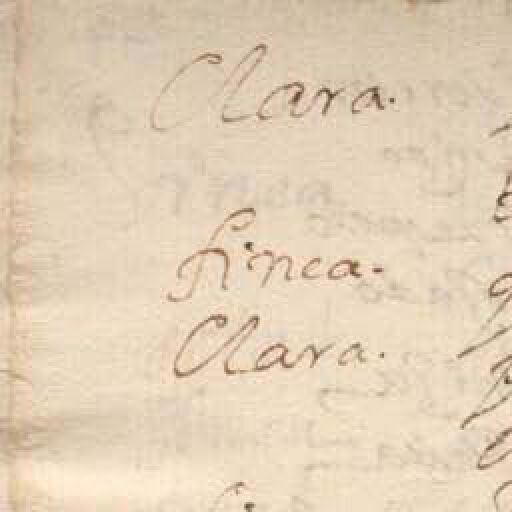 Clara.
finea.
Clara.